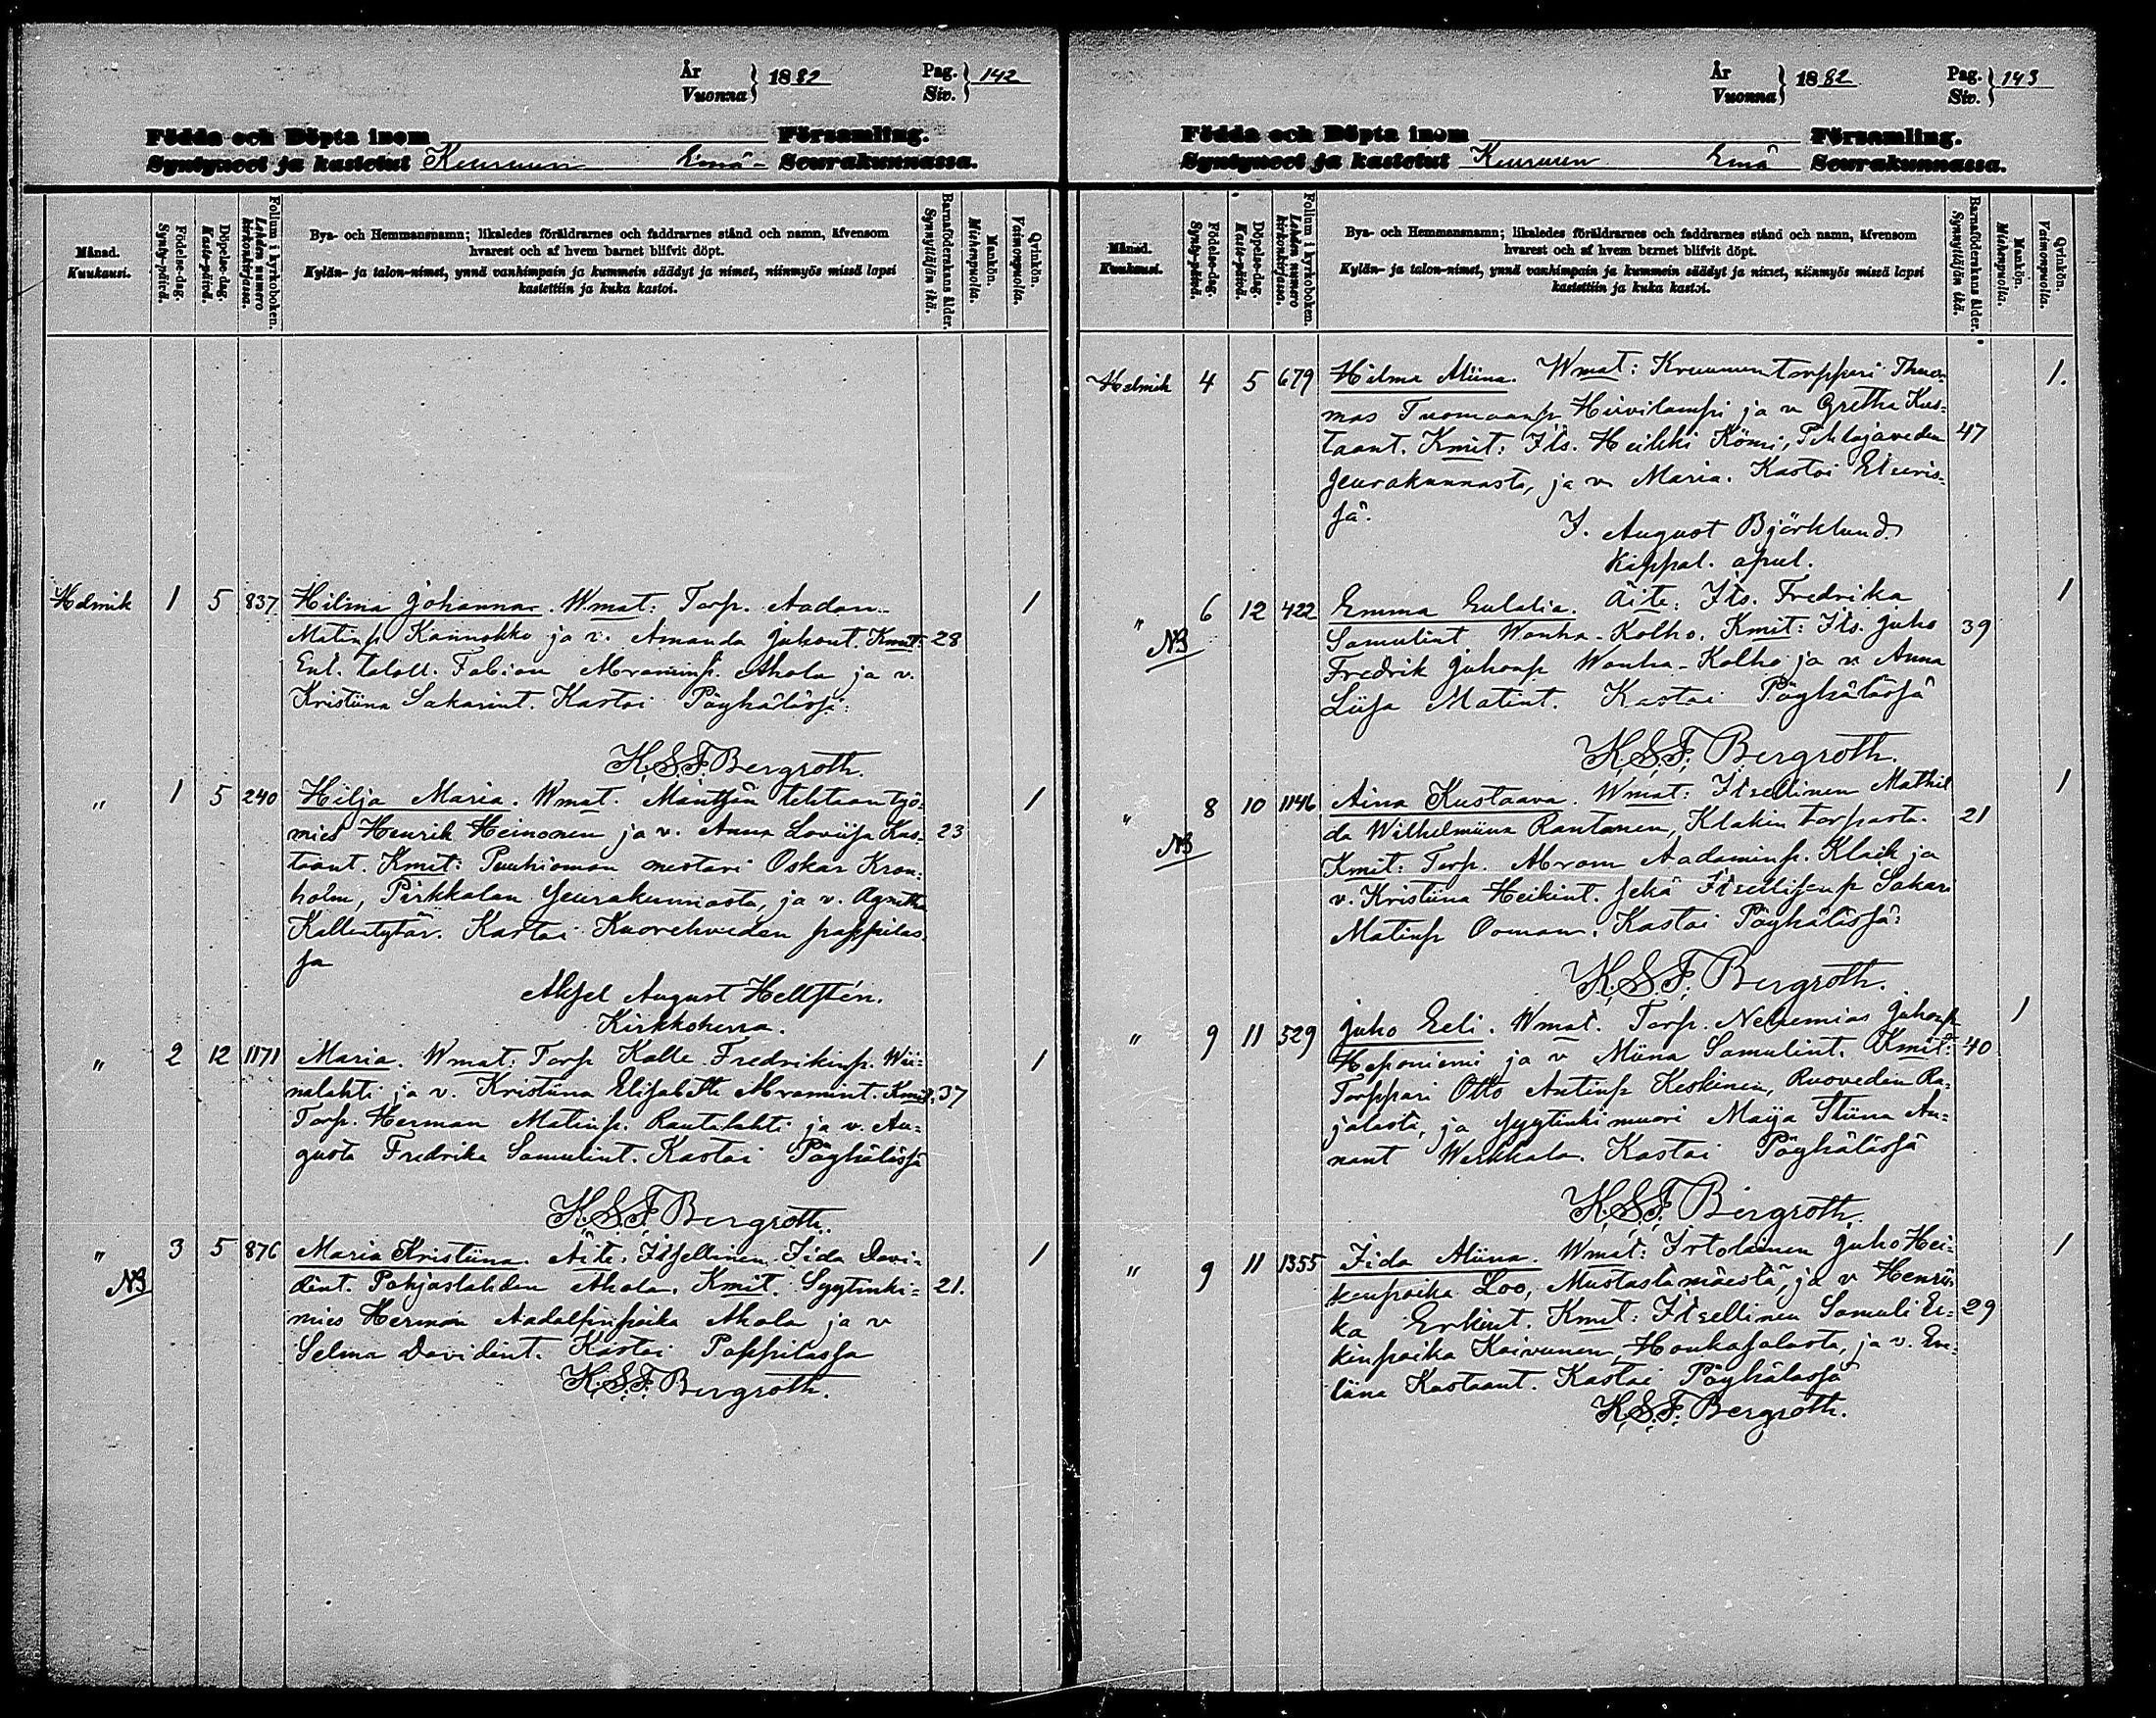 År
Vuonna } 1882
Pag.
Siv. } 142
Födda och Döpta inom Församling.
Syntyneet ja kastetut Keuruun Emä- Seurakunnassa.
Månad.
Kuukausi.
Födelse-dag.
Synty-päivä.
Döpelse-dag.
Kaste-päivä.
Folium i kyrkoboken.
Lehden numero
kirkonkirjassa.
Bya- och Hemmansnamn; likaledes föräldrarnes och faddrarnes stånd och namn, äfvensom
hvarest och af hvem barnet blifvit döpt.
Kylän- ja talon-nimet, ynnä vanhimpain ja kummein säädyt ja nimet, niinmyös missä lapsi
kastettiin ja kuka kastoi.
Barnaföderskans ålder.
Synnyttäjän ikä.
Mankön.
Miehenpuolta.
Qvinkön.
Vaimonpuolta.
Helmik 1 5 837 Hilma Johanna. Wmat: Torp. Aadam 1
Matinp. Kannokko ja v. Amanda Juhont. Kmit: 28
Ent. taloll. Fabian Abraminp. Ahola ja v.
Kristiina Sakarint. Kastoi Pöyhölässä:
K.S.F. Bergroth.
" 1 5 240 Hilja Maria. Wmat. Mäntän tehtaan työ- 1
mies Henrik Heinonen ja v. Anna Loviisa Kus- 23
taant. Kmit: Puuhioman mestari Oskar Kron-
holm, Pirkkalan seurakunnasta, ja v. Agnetha
Kallentytär. Kastoi Kuoreveden pappilas-
sa
Aksel August Hellstén.
Kirkkoherra.
" 2 12 1171 Maria. Wmat: Torp Kalle Fredrikinp. Wii- 1
nalahti ja v. Kristiina Elisabeth Abramint. Kmit. 37
Torp. Herman Matinp. Rautalahti ja v. Au-
gusta Fredrika Samulint. Kastoi Pöyhölässä
K.S.F. Bergroth.
" 3 5 876 Maria Kristiina. Äite. Itsellinen Fida Davi- 1
NB dint. Pohjaslahden Ahola. Kmit. Syytinki- 21.
mies Herman Aadolfinpoika Ahola ja v
Selma Davidint. Kastoi Pappilassa
K.S.F. Bergroth.
År
Vuonna } 1882
Pag.
Siv. } 143
Födda och Döpta inom Församling.
Syntyneet ja kastetut Keuruun Emä Seurakunnassa.
Månad.
Kuukausi.
Födelse-dag.
Synty-päivä.
Döpelse-dag.
Kaste-päivä.
Folium i kyrkoboken.
Lehden numero
kirkonkirjassa.
Bya- och Hemmansnamn; likaledes föräldrarnes och faddrarnes stånd och namn, äfvensom
hvarest och af hvem barnet blifvit döpt.
Kylän- ja talon-nimet, ynnä vanhimpain ja kummein säädyt ja nimet, niinmyös missä lapsi
kastettiin ja kuka kastoi.
Barnaföderskans ålder.
Synnyttäjän ikä.
Mankön.
Miehenpuolta.
Qvinkön.
Vaimonpuolta.
Helmik 4 5 679 Hilma Miina. Wmat: Kruunun torppari Thuo- 1.
mas Tuomaanp Hirvilampi ja v Gretha Kus-
taant. Kmit: Its. Heikki Kömi, Pihlajaveden 47
seurakunnasta, ja v. Maria. Kastoi
sä.
J. August Björklund
kappal. apul.
" 6 12 422 Emma Eulalia. Äite: Its. Fredrika 1
NB Samulint Wanha-Kolho. Kmit: Its. Juho 39
Fredrik Juhonp Wanha-Kolho ja v. Anna
Liisa Matint. Kastoi Pöyhölässä
K.S.F. Bergroth.
" 8 10 1146 Aina Kustaava. Wmat: Itsellinen Mathil 1
NB da Wilhelmiina Rantanen, Klakin torpasta. 21
Kmit: Torp. Abram Aadaminp. Klaik ja
v. Kristiina Heikint. sekä Itsellisenp Sakari
Matinp Ooman. Kastoi Pöyhölässä:
K.S.F. Bergroth.
" 9 11 529 Juho Eeli. Wmat. Torp. Nehemias Juhonp 1
Heponiemi ja v Miina Samulint. Kmit: 40
Torppari Otto Antinp Keskinen, Ruoveden Ra-
jalasta, ja syytinkimuori Maija Stiina An-
nant Werkkala. Kastoi Pöyhölässä
K.S.F. Bergroth.
" 9 11 1355 Fida Miina. Wmat: Irtolainen Juho Hei- 1
kinpoika Loo, Mustastamäestä, ja v Henrii-
ka Erkint. Kmit: Itsellinen Samuli Er- 29
kinpoika Koivunen, Honkasalosta, ja v. Eve-
liina Kustaant. Kastoi Pöyhölässä
K.S.F. Bergroth.